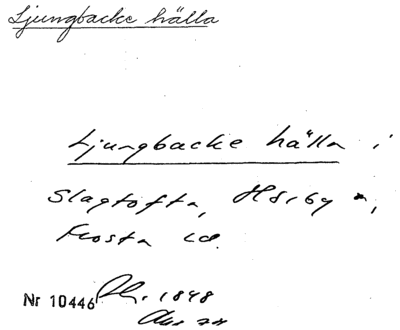 Ljungbacke hälla
Ljungbacke hälla i
Slagtofta, Hörby
Frosta
Nr 10446 1848